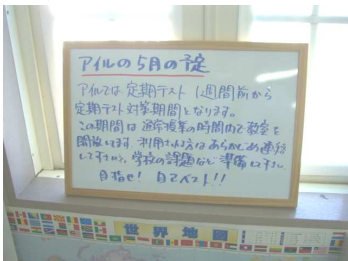 アイルの5月の予定
アイルでは 定期テスト 1週間前から
定期テスト対策期間となります。
この期間は 通常授業の時間内で教室を
開放します 利用される方はあらかじめ連絡
して下さい。学校の課題など 準備して下さい
目指せ! 自己ベスト!!
世界地図